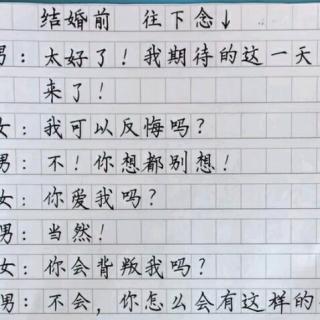 结婚前 往下念↓
男：太好了！我期待的这一天
来了！
女：我可以反悔吗？
男：不！你想都别想！
女：你爱我吗？
男：当然！
女：你会背叛我吗？
男：不会，你怎么会有这样的